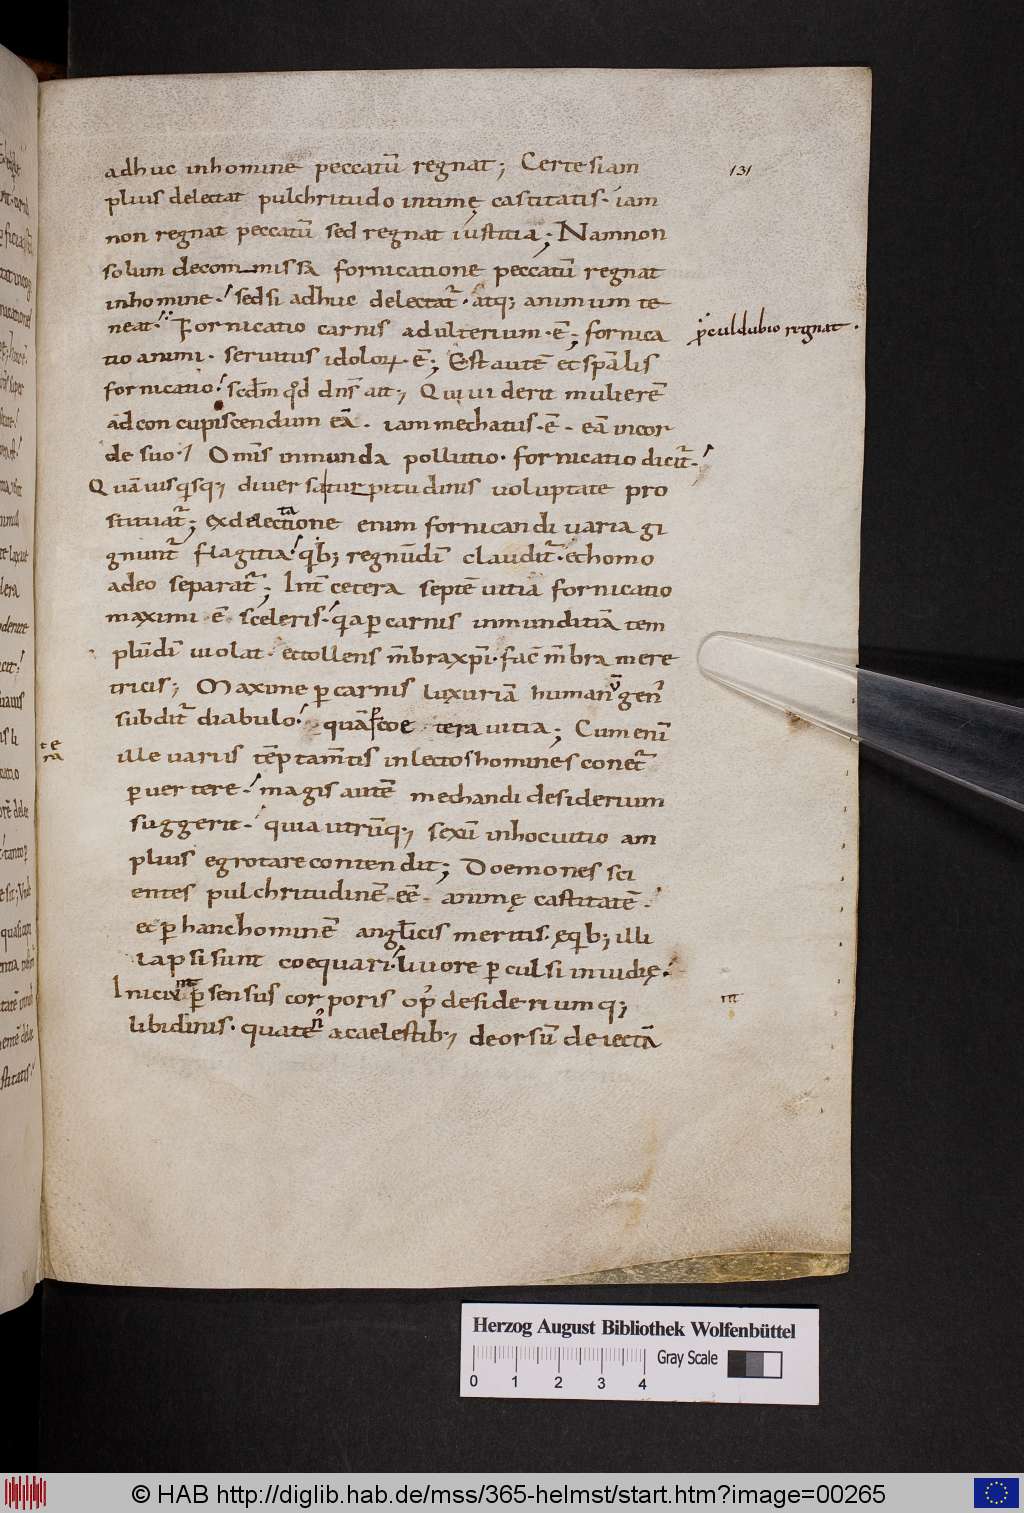 adhuc inhomine peccatū regnat; Certe siam
131
plius delectat pulchritudo intimę castitatis· iam
non regnat peccatū sed regnat iustitia; Namnon
solum decommissa fornicatione peccatū regnat
inhomine· sedsi adhuc delectat᷑· atq; animum te
neat· Fornicatio carnis adulterium·ē; fornica
ꝓculdubio regnat·
tio animi· seruitus idoloꝝ·ē; Est autē et spālis
fornicatio· scdm qd dns̄ ait; Qui uiderit mulierē
adconcupiscendum eā· iam mechatus·ē· eā incor
de suo· Omīs inmunda pollutio· fornicatio dicit᷑·
Quāuis qisq; diuersa turpitudinis uoluptate pro
stituat᷑; exdelectatione enim fornicandi uaria gi
gnunt᷑ flagitia· qib; regnūdī claudit᷑· et homo
adeo separat᷑; Int̄ cetera septē uitia fornicatio
maximi ē sceleris· qa ꝑ carnis inmunditiā tem
plūdī uiolat· ettollens mēbraxp̄i· fac̄ mēbra mere
tricis; Maxime ꝑ carnis luxuriā human̄ gen᷒
subdit᷑ diabulo· quā ꝑ coetera uitia; Cum enī
te
ra
ille uariis tēptam̄tis inlectos homines conet᷑
ꝑuertere· magis autē mechandi desiderium
suggerit· quia utrūq; sexū inhocuitio am
plius egrotare contendit; Doemones sci
entes pulchritudinē eē· animę castitatē·
et ꝑ hanc hominē angl̄icis meritis· ęqib; illi
lapsi sunt coequari· liuore ꝑculsi inuidię·
Iniciunt ꝑ sensus corporis op᷒ desideriumq;
nt
libidinis· quaten᷒ acaelestib; deorsū deiectā
© HAB http://diglib.hab.de/mss/365-helmst/start.htm?image=00265
Herzog August Bibliothek Wolfenbüttel
Gray Scale
0 1 2 3 4